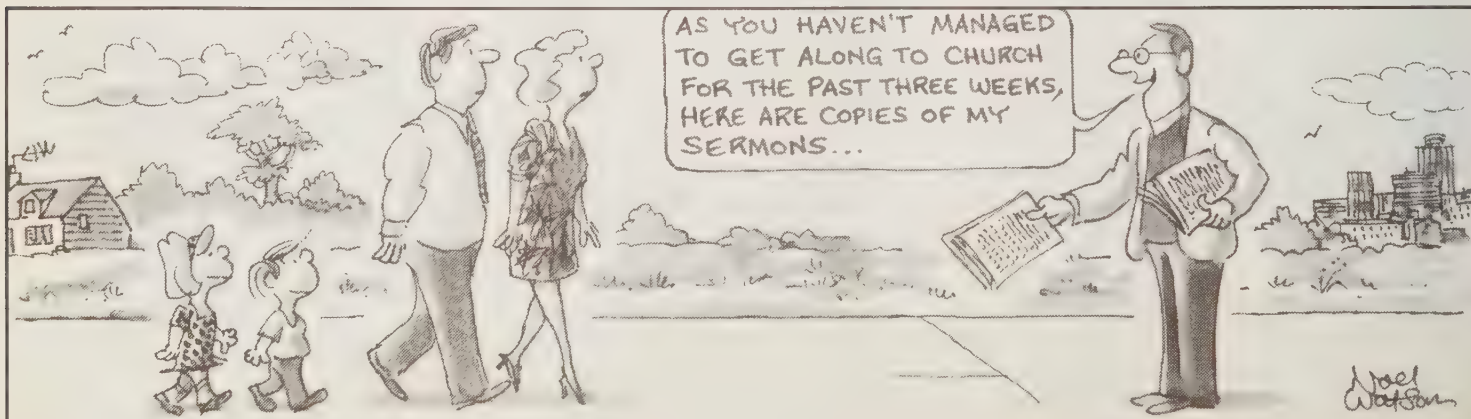 AS YOU HAVEN'T MANAGED
TO GET ALONG TO CHURCH
FOR THE PAST THREE WEEKS,
HERE ARE COPIES OF MY
SERMONS...
Noel
Watson